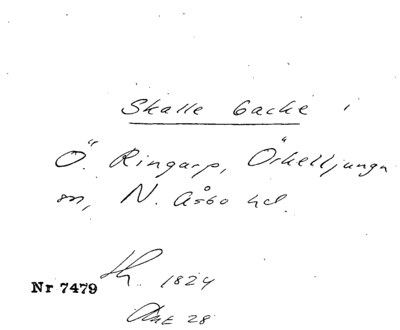 Skalle backe i
Ö. Ringarp, Örkelljunga
sn, N. Åsbo hd.
1824
Nr 7479
28